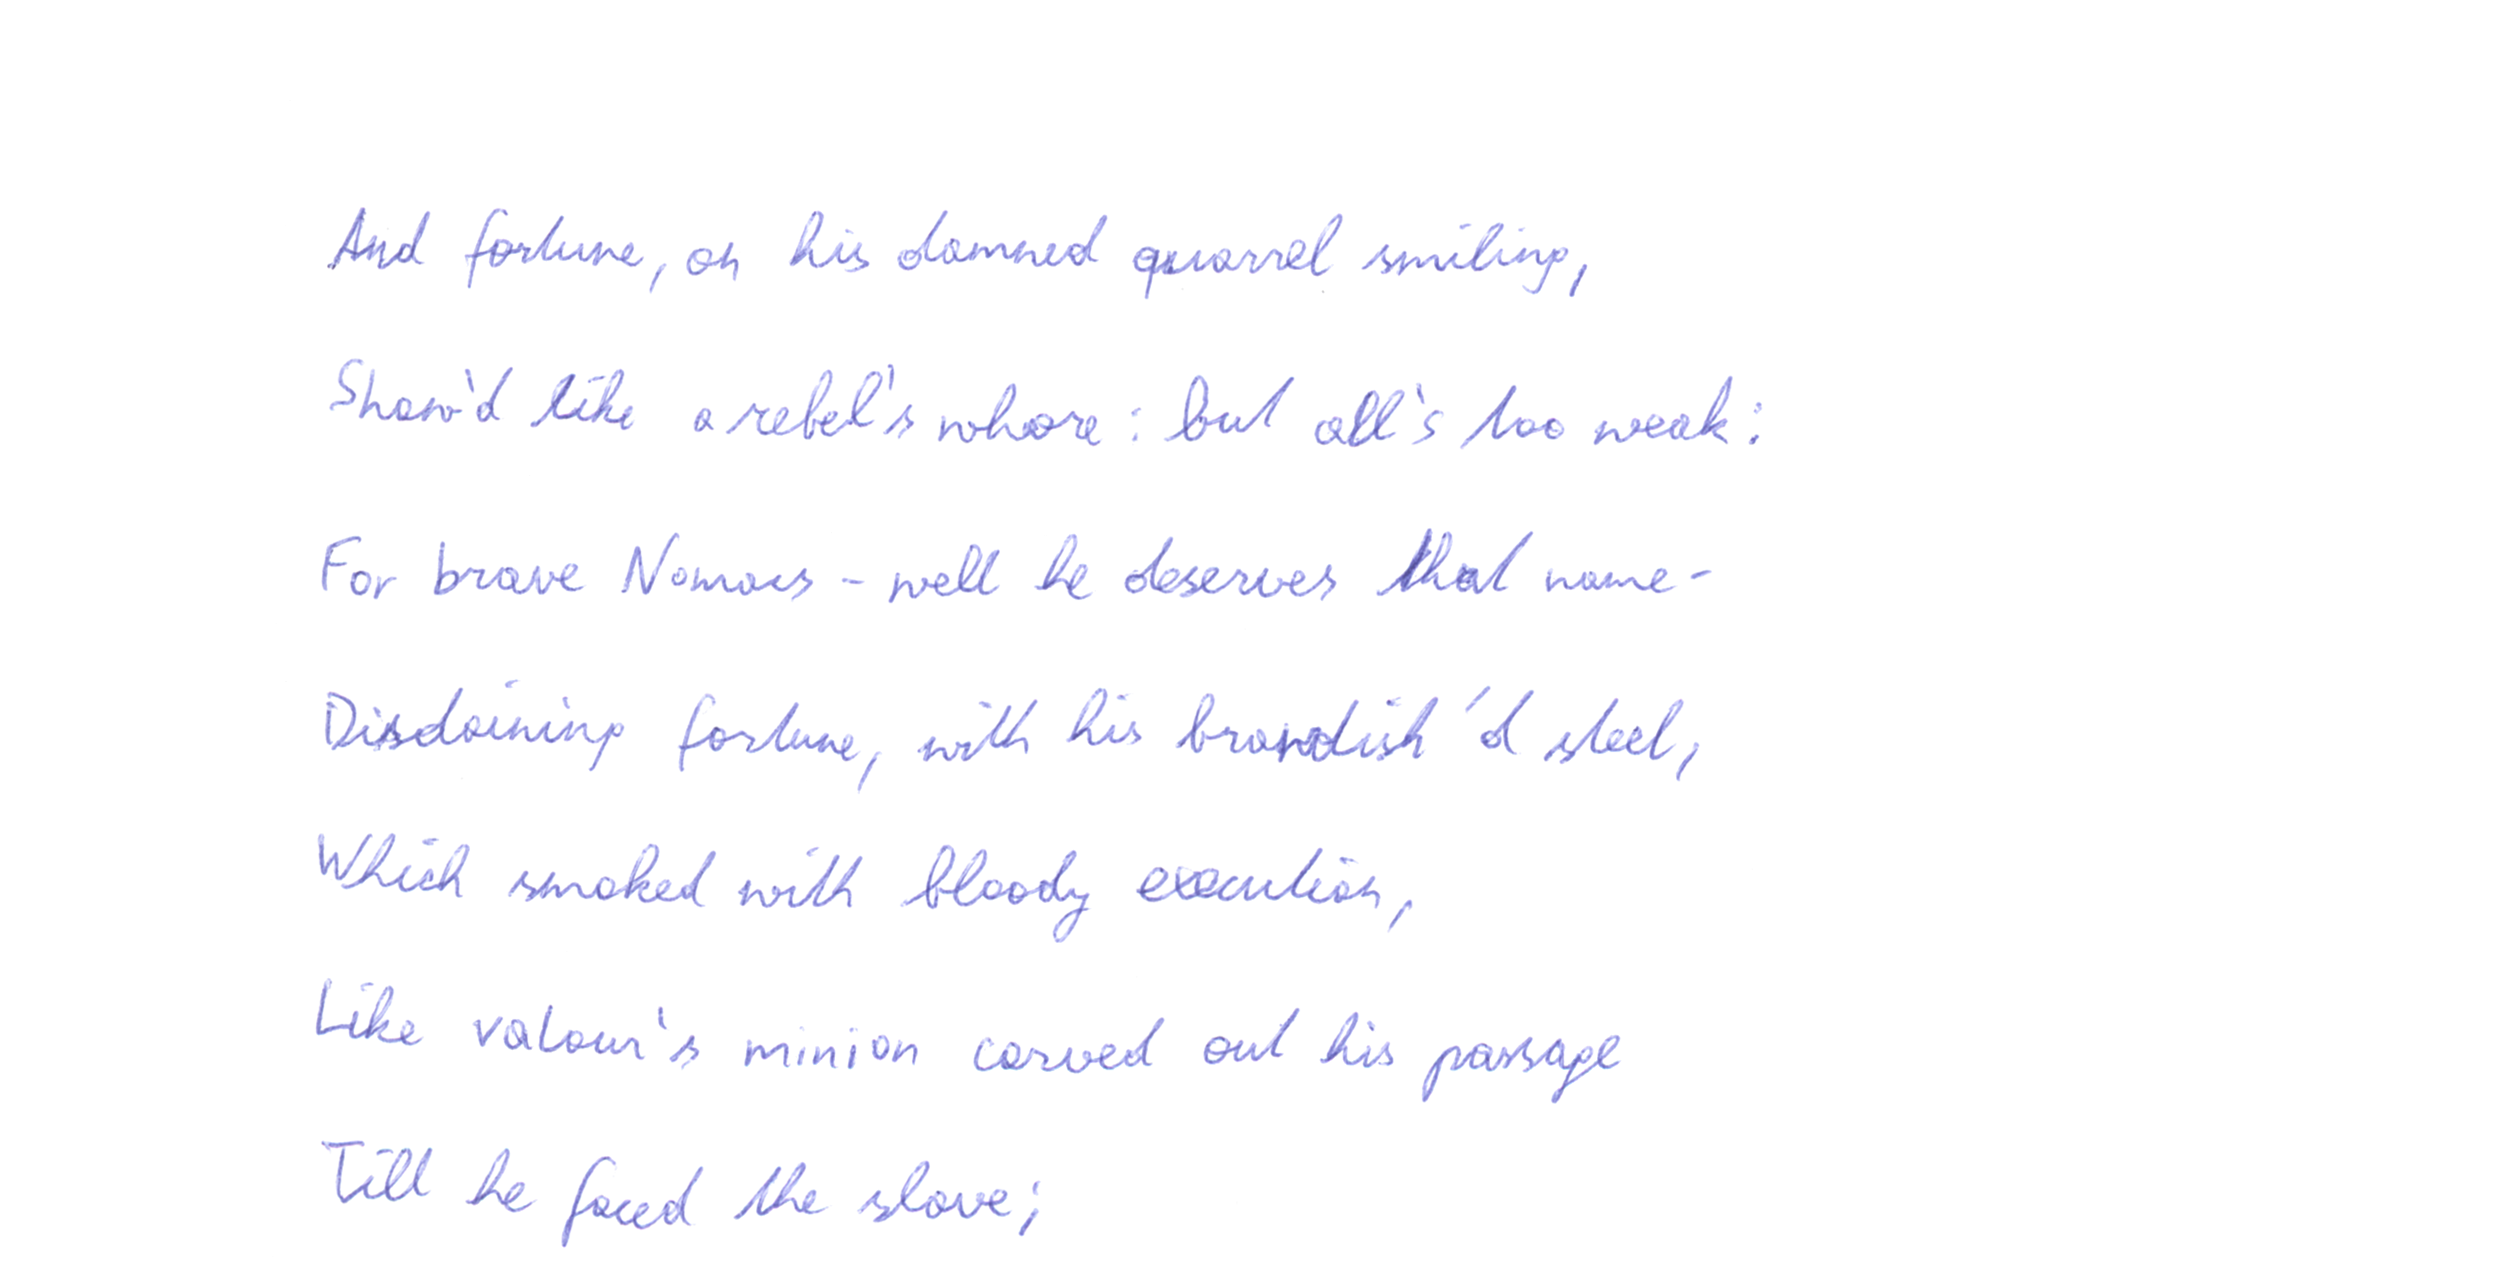 And fortune, on his damned quarrel smiling,
Show'd like a rebel's whore: but all's too weak:
For brave Nomaus - well he deserves that name -
Disdaining fortune, with his brandish'd steel,
Which smoked with bloody execution,
Like valour's minion carved out his passage
Till he faced the slave;